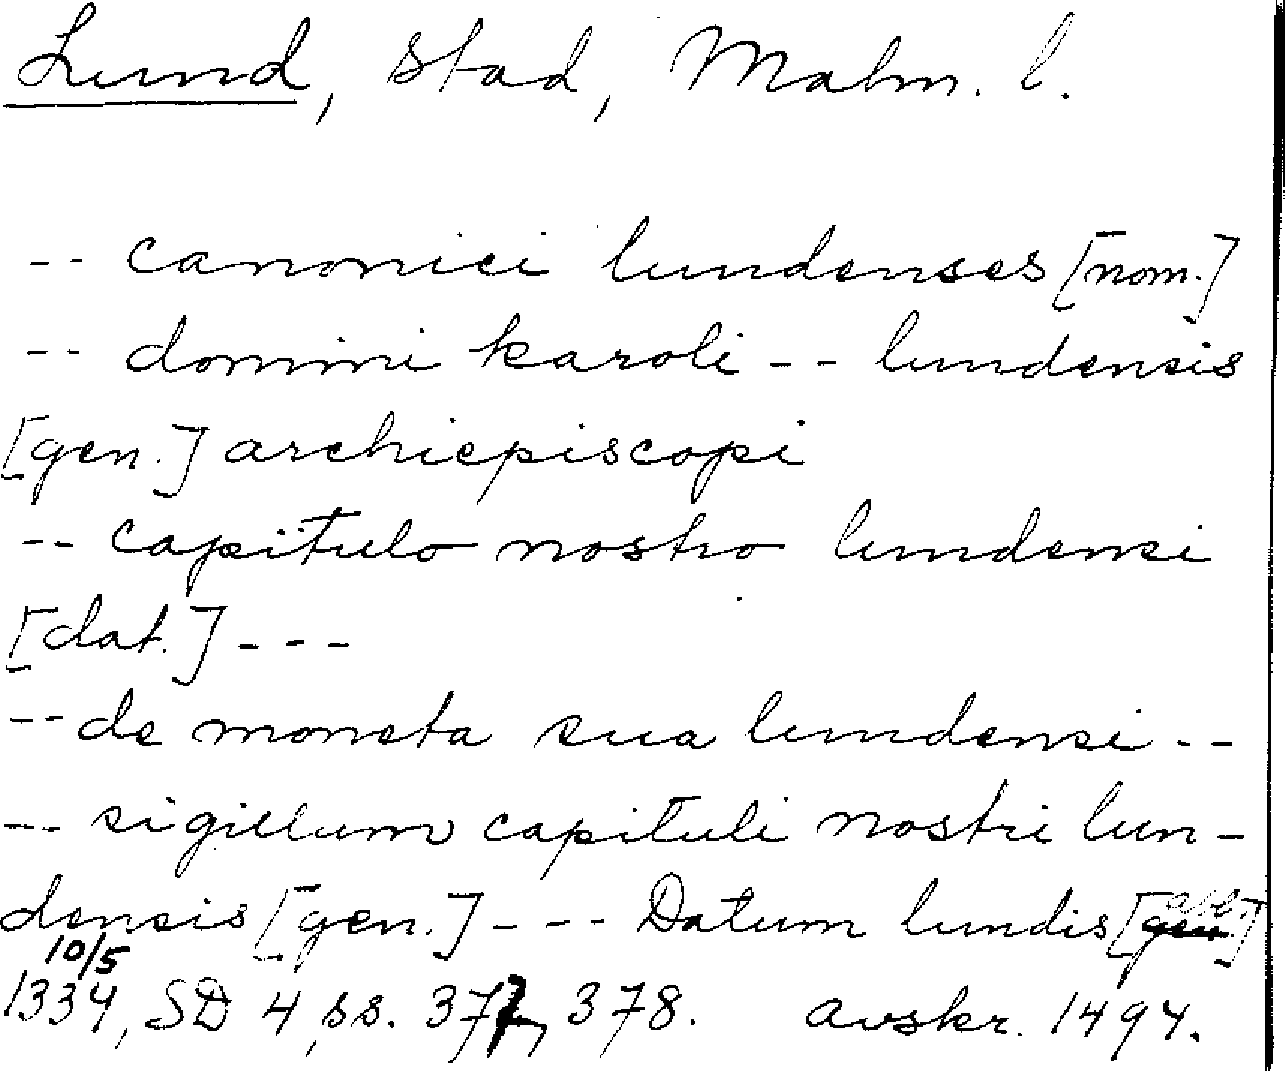 Lund, stad, Malm. l.
-- canonici lundenses [nom.]
-- domini karoli -- lundensis
[gen.] archiepiscopi
-- capitulo nostro lundensi
[dat.] ---
-- de moneta sua lundensi --
-- sigillum capituli nostri lun-
densis [gen.] --- Datum lundis [abl.]
10/5
1334, SD 4, ss. 377, 378. avskr. 1494.